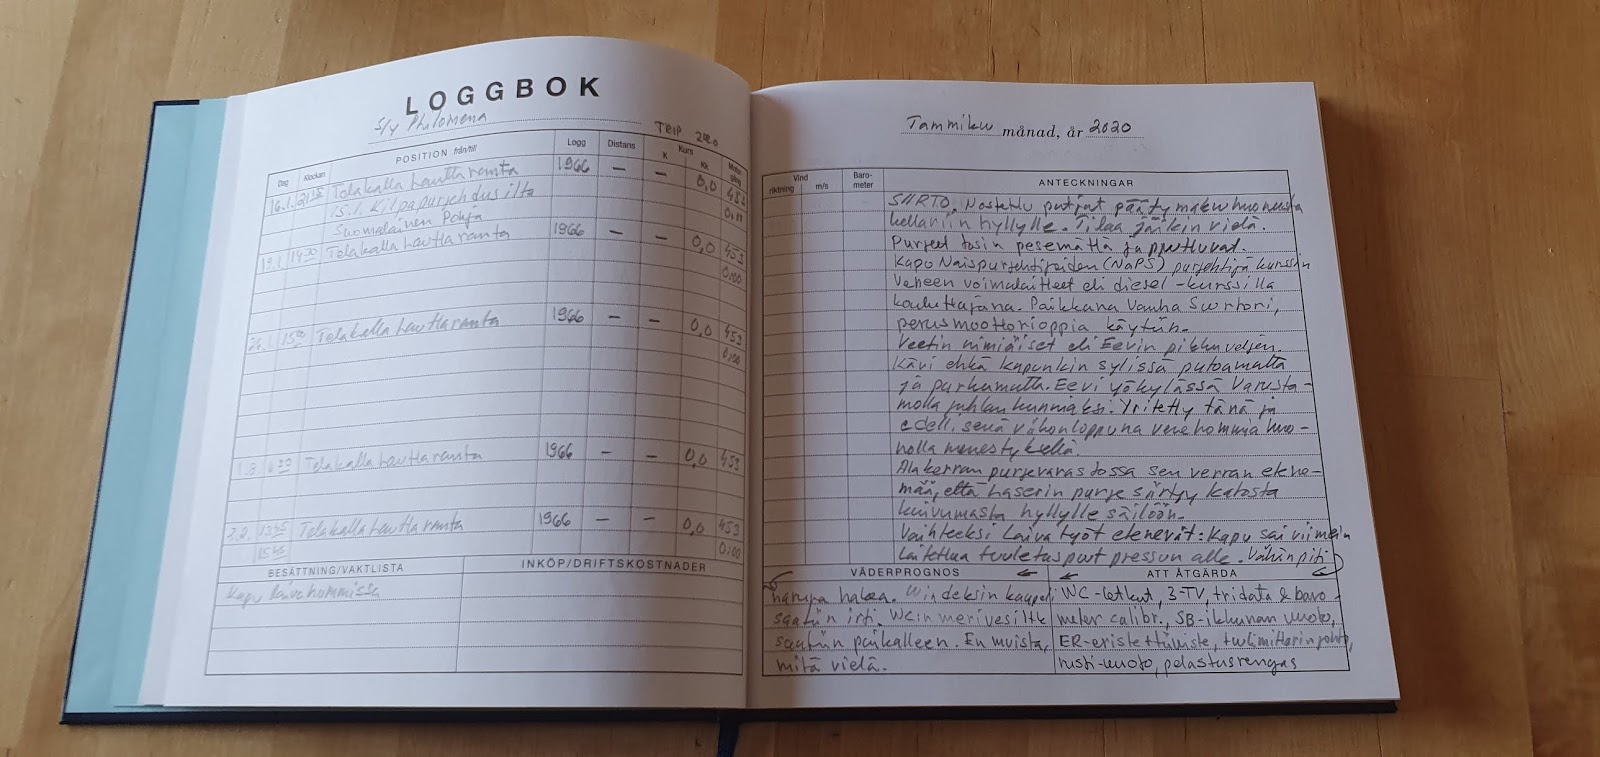 LOGGBOK
S/y Philomena
TRIP 2020
Dag Klockan POSITION från/till Logg Distans Kurs K Kk Motor gång
16.1. 21 15 Telakalla Lauttaranta 1966 — — 0,0 453
15.1. Kilpapurjehdusilta 0:00
Suomalainen Pohja
19.1. 14 30 Telakalla Lauttaranta 1966 — — 0,0 453
0:00
26.1. 15 00 Telakalla Lauttaranta 1966 — — 0,0 453
0:00
Telakalla Lauttaranta 1966 — — 0,0 453
2.2. 13 45 Telakalla Lauttaranta 1966 — — 0,0 453
15 45 0:00
BESÄTTNING/VAKTLISTA INKÖP/DRIFTSKOSTNADER
Kapu laivahommissa
Tammikuu månad, år 2020
Vind riktning m/s Barometer ANTECKNINGAR
SIIRTO. Nostettu purjeet päätymakuuhuoneesta
kellariin hyllylle. Tilaa jäikin vielä.
Purjeet tosin pesemättä ja
Kapu Naispurjehtijoiden (NaPS) purjehtijakurssin
Veneen voimalaitteet eli diesel-kurssilla
kouluttajana. Paikkana Vanha Suortori,
perusmoottorioppia käytiin.
Veetin nimiäiset eli Eevin pikkuveljen.
Kävi ehkä kapunkin sylissä putoamatta
ja purematta. Eevi yökylässä Varusta-
molla juhlan kunniaksi. Yritetty tänä ja
edellisenä viikonloppuna venehommia huo-
nolla menestyksellä.
Alakerran purjevarastossa sen verran elene-
mää, että laserin purje siirtyy katosta
kuivumasta hyllylle säilöön.
Vaihteeksi laivatyöt etenevät: Kapu sai viimein
laitettua tuuletusputpressun alle. Vähän piti
VÄDERPROGNOS ATT ÅTGÄRDA
hampa hakea. Windeksin kaapeli
saatiin irti. WC:in merivesiletk
saatiin paikalleen. En muista,
mitä vielä.
WC-letkut, 3-TV, tridata & baro-
meter calibr., SB-ikkunan vuoto,
ER-eristettäviste, tuulimittarin johto,
rusti-vuoto, pelastusrengas